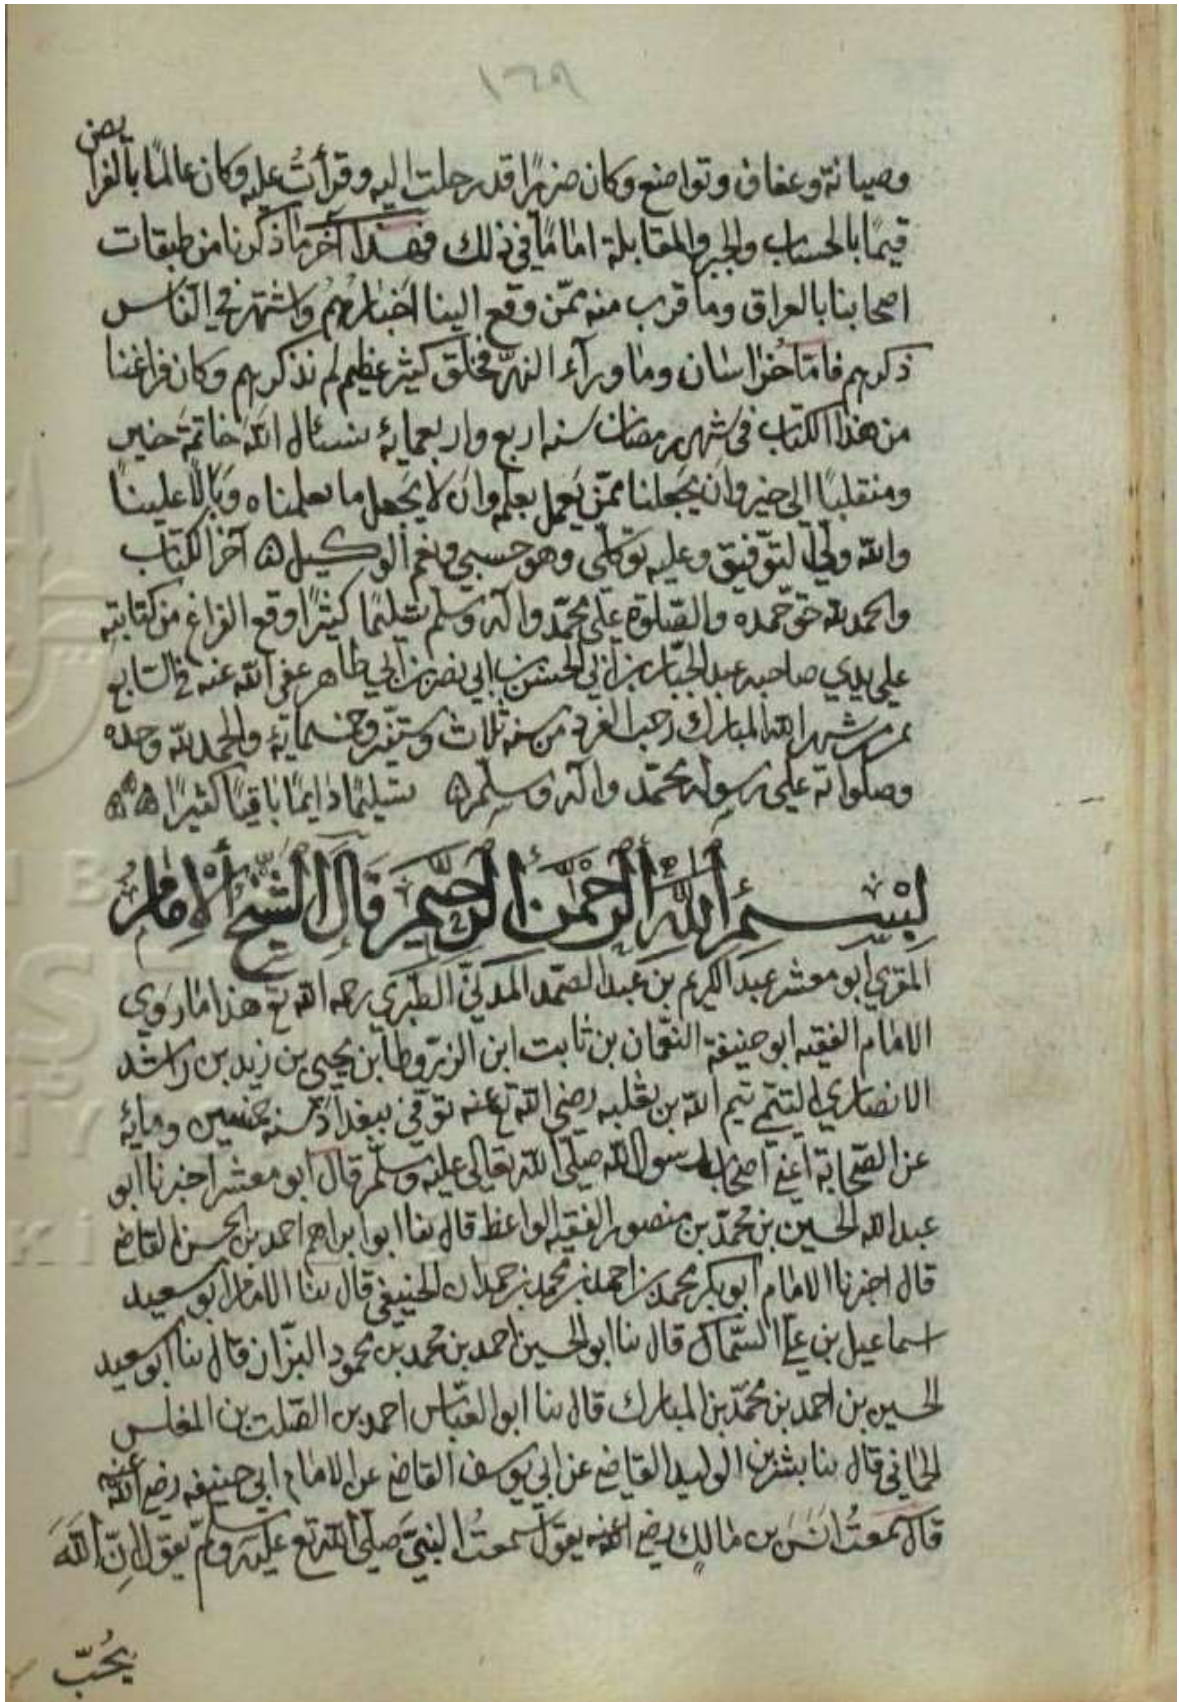 ١٦٩
وصيانة وعفاف وتواضع وكان ضريرًا قد رحلت اليه وقرأتُ عليه وكان عالمًا بالفرا يض
قيمًا بالحساب والجبر والمقابلة امامًا في ذلك فهذا آخر ما ذكرنا من طبقات
اصحابنا بالعراق وما قرب منه ممّن وقع الينا اخبارهم واشتهر في النّاس
ذكرهم فامّا خراسان وما ورآء النهر فخلق كثير عظيم لم نذكرهم وكان فراغنا
من هذا الكتاب في شهر رمضان سنه اربع واربعمايه نسئال الله خاتمة خير
ومنقلبًا الى خير وان يجعلنا ممّن يعمل بعلم وان لا يجعل ما تعلمناه وبالا علينا
والله وليّ التوّفيق وعليه توكلى وهو حسبي ونعم الوكيل ۞ آخر الكتاب
والحمد لله حق حمده والصّلوة على محمّد وآله وسلم تسليمًا كثيرًا وقع الفراغ من كتابته
على يدي صاحبه عبد الجبّار بن ابي الحسن بن ابي نصر بن ابي طاهر عفى الله عنه في السّابع
من شهر الله المبارك رجب الفرد من سنه ثلاث وستين وخمسمائة والحمد لله وحده
وصلواته على رسوله محمّد وآله وسلم ۞ تسليمًا دايمًا باقيًا كثيرًا ۞۞۞
بِسْمِ اللهِ الرَّحْمٰنِ الرَّحِيمِ قَالَ الشَّيْخُ الْاِمَامُ
المقري ابو معشر عبد الكريم بن عبد الصّمد المدكيّ الطبري رحمه الله تع هذا ما روي
الامام الفقيه ابو حنيفة النعّمان بن ثابت ابن الزوطا بن يحيى بن زيد بن راشد
الانصاري التيّمي تيم الله بن ثعلبه رضي الله تع عنه توفي ببغداد سنه خمسين ومايه
عن الصّحابة اعني اصحاب رسول الله صلّى الله تعالى عليه وسلّم قال ابو معشر اخبرنا ابو
عبد الله الحسين بن محمّد بن منصور الفقيه الواعظ قال ثنا ابو ابراهيم احمد بن الحسن القاضي
قال اخبرنا الامام ابو بكر محمد بن احمد بن محمد بن حمدان الحنيفي قال ثنا الامام ابو سعيد
اسماعيل بن عليّ السّماك قال ثنا ابو الحسين احمد بن محمد بن محمود البزّاز قال ثنا ابو سعيد
الحسين بن احمد بن محمّد بن المبارك قال ثنا ابو العبّاس احمد بن الصّلت بن المغلس
الحمّاني قال ثنا بشر بن الوليد القاضي عن ابي يوسف القاضي عن الامام ابي حنيفه رضي الله عنه
قال سمعتُ انَسَ بن مالكٍ رضي الله عنه يقول سمعتُ النبيّ صلّى الله تع عليه وسلّم يقول اِنّ اللهَ
يُحُبّ